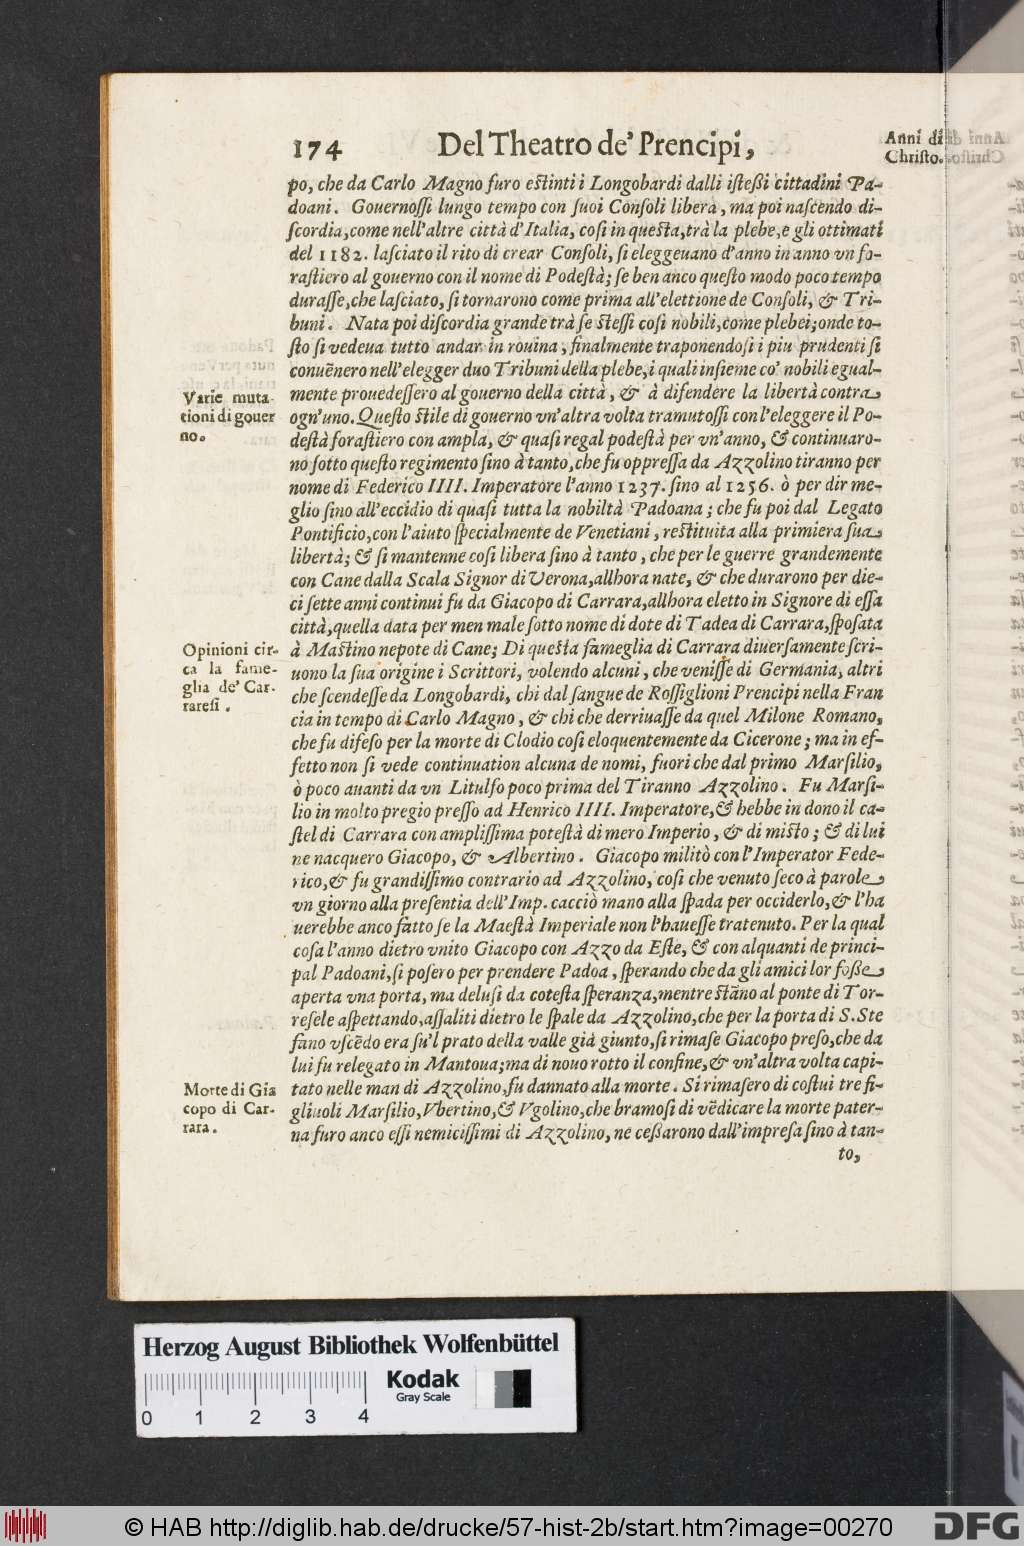 174 Del Theatro de' Prencipi, Anni di
Christo.
po, che da Carlo Magno furo estinti i Longobardi dalli istessi cittadini Pa-
doani. Gouernossi lungo tempo con suoi Consoli libera, ma poi nascendo di-
scordia,come nell'altre città d'Italia, cosi in questa,trà la plebe,e gli ottimati
del 1182. lasciato il rito di crear Consoli, si eleggeuano d'anno in anno vn fo-
rastiero al gouerno con il nome di Podestà; se ben anco questo modo poco tempo
durasse,che lasciato, si tornarono come prima all'elettione de Consoli, & Tri-
buni. Nata poi discordia grande trà se stessi cosi nobili,come plebei;onde to-
sto si vedeua tutto andar in rouina, finalmente traponendosi i piu prudenti si
conuēnero nell'elegger duo Tribuni della plebe,i quali insieme co' nobili egual-
mente prouedessero al gouerno della città, & à difendere la libertà contra
ogn'uno. Questo stile di gouerno vn'altra volta tramutossi con l'eleggere il Po-
destà forastiero con ampla, & quasi regal podestà per vn'anno, & continuaro-
no sotto questo regimento sino à tanto,che fu oppressa da Azzolino tiranno per
nome di Federico IIII. Imperatore l'anno 1237. sino al 1256. ò per dir me-
glio sino all'eccidio di quasi tutta la nobiltà Padoana; che fu poi dal Legato
Pontificio,con l'aiuto specialmente de Venetiani, restituita alla primiera sua
libertà; & si mantenne cosi libera sino à tanto, che per le guerre grandemente
con Cane dalla Scala Signor di Verona,allhora nate, & che durarono per die-
ci sette anni continui fu da Giacopo di Carrara,allhora eletto in Signore di essa
città,quella data per men male sotto nome di dote di Tadea di Carrara,sposata
à Mastino nepote di Cane; Di questa fameglia di Carrara diuersamente scri-
uono la sua origine i Scrittori, volendo alcuni, che venisse di Germania, altri
che scendesse da Longobardi, chi dal sangue de Rossiglioni Prencipi nella Fran
cia in tempo di Carlo Magno, & chi che derriuasse da quel Milone Romano,
che fu difeso per la morte di Clodio cosi eloquentemente da Cicerone; ma in ef-
fetto non si vede continuation alcuna de nomi, fuori che dal primo Marsilio,
ò poco auanti da vn Litulfo poco prima del Tiranno Azzolino. Fu Marsi-
lio in molto pregio presso ad Henrico IIII. Imperatore,& hebbe in dono il ca-
stel di Carrara con amplissima potestà di mero Imperio, & di misto; & di lui
ne nacquero Giacopo, & Albertino. Giacopo militò con l'Imperator Fede-
rico,& fu grandissimo contrario ad Azzolino, cosi che venuto seco à parole
vn giorno alla presentia dell'Imp. cacciò mano alla spada per occiderlo,& l'ha
uerebbe anco fatto se la Maestà Imperiale non l'hauesse tratenuto. Per la qual
cosa l'anno dietro vnito Giacopo con Azzo da Este, & con alquanti de princi-
pal Padoani,si posero per prendere Padoa, sperando che da gli amici lor fosse
aperta vna porta, ma delusi da cotesta speranza,mentre stāno al ponte di Tor-
resele aspettando,assaliti dietro le spale da Azzolino,che per la porta di S.Ste
fano vscēdo era su'l prato della valle già giunto,si rimase Giacopo preso,che da
lui fu relegato in Mantoua;ma di nouo rotto il confine,& vn'altra volta capi-
tato nelle man di Azzolino,fu dannato alla morte. Si rimasero di costui tre fi-
gliuoli Marsilio,Vbertino,& Vgolino,che bramosi di vēdicare la morte pater-
na furo anco essi nemicissimi di Azzolino, ne cessarono dall'impresa sino à tan-
to,
Varie muta-
tioni di gouer
no.
Opinioni cir-
ca la fame-
glia de' Car-
raresi.
Morte di Gia
copo di Car-
rara.
Herzog August Bibliothek Wolfenbüttel
Kodak
Gray Scale
0 1 2 3 4
© HAB http://diglib.hab.de/drucke/57-hist-2b/start.htm?image=00270
DFG